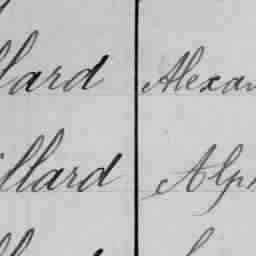 llard Alexan
illard Alph